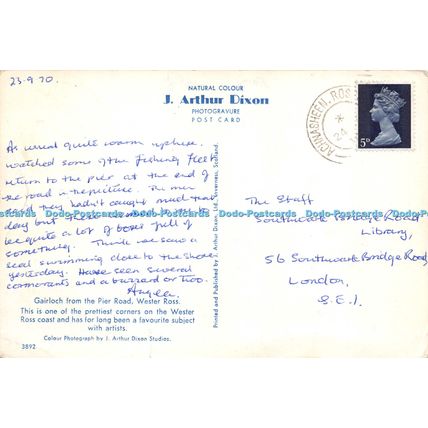 23-9-70.
NATURAL COLOUR
J. Arthur Dixon
PHOTOGRAVURE
POST CARD
ACHNASHEEN, ROSS
24
5D
As usual quite warm up here.
Watched some of the fishing fleet
return to the pier at the end of
the road in the picture. The men
said they hadn't caught much that
day but there
be quite a lot of boxes full of
something. Think we saw a
seal swimming close to the shore
yesterday. Have seen several
cormorants and a buzzard or two.
Angela.
Gairloch from the Pier Road, Wester Ross.
This is one of the prettiest corners on the Wester
Ross coast and has for long been a favourite subject
with artists.
Colour Photograph by J. Arthur Dixon Studios.
3892
Printed and Published by J. Arthur Dixon Inverness, Scotland.
The Staff
Southwark Bridge Road
Library,
56 Southwark Bridge Road
London,
S.E.1.
Dodo-Postcards Dodo-Postcards Dodo-Postcards Dodo-Postcards Dodo-Postcards